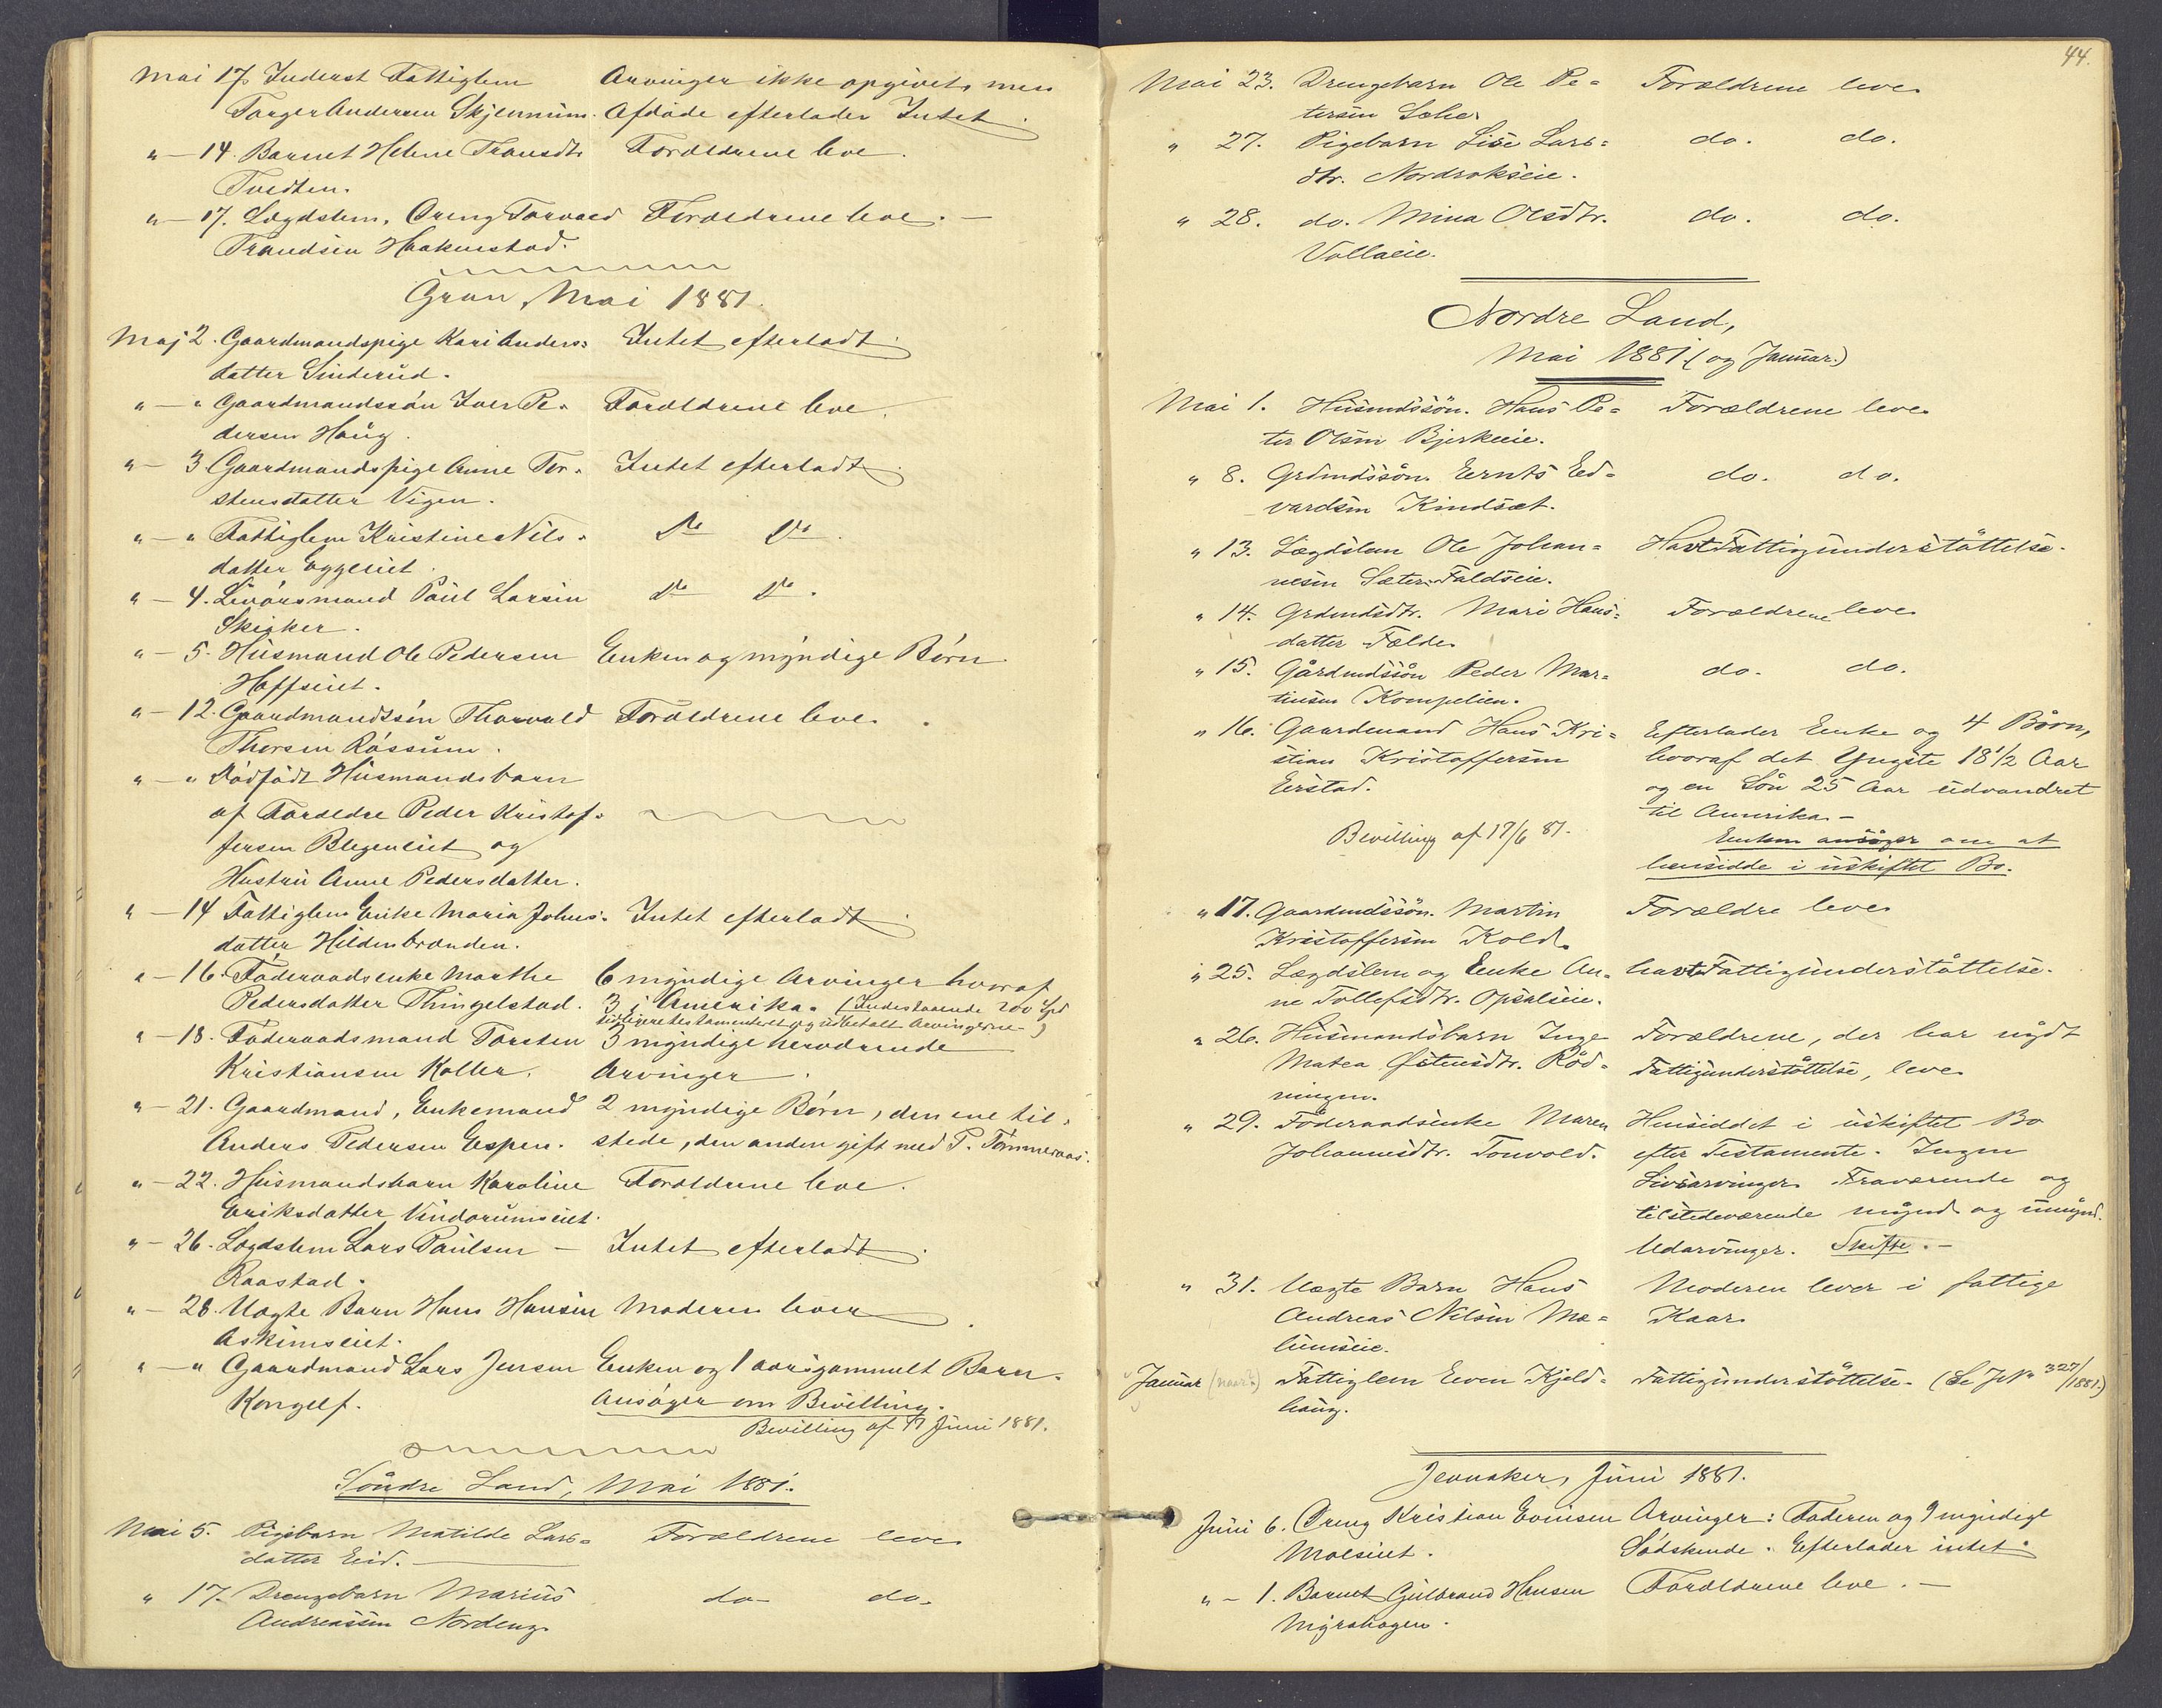 Mai 17. Inderst Fattiglem Arvinger ikke opgivet, men
Torger Andersen Skjennum. Afdöde efterlader Intet.
" — 14. Barnet Helene Transdtr. Forældrene leve.
Tvedten.
" — 17. Lægdslem, Dreng Torvald Forældrene leve. —
Trandsen Haakenstad.
Gran, Mai 1881.
Maj 2. Gaardmandspige Kari Anders= Intet efterladt.
datter Sinderud.
" — " Gaardmandssön Iver Pe= Forældrene leve.
dersen Haug.
" — 3. Gaardmandspige Anne Tor= Intet efterladt.
stensdatter Vigen.
" — " Fattiglem Kristine Nils= Do Do.
datter Eggeeiet.
" — 4. Livörsmand Paul Larsen Do Do.
Skiaker.
" — 5. Husmand Ole Pedersen Enken og myndige Börn
Hoffseiet.
" — 12. Gaardmandssön Thorvald Forældrene leve.
Thorsen Róssum.
" — " Dödfödt Husmandsbarn
af Forældre Peder Kristof=
fersen Blegeneiet og
Hustru Anne Pedersdatter.
" — 14 Fattiglem Enke Maria Johns= Intet efterladt.
datter Hildenbranden.
" — 16. Föderaadsenke Marthe 6 myndige Arvinger hvoraf
Pedersdatter Thingelstad. 3 i Amerika. (Indestaaende 200 Spd
tidligere testamenteret og udbetalt Arvingerne.)
" — 18. Föderaadsmand Torsten 3 myndige herværende
Kristiansen Koller. Arvinger.
" — 21. Gaardmand, Enkemand 2 myndige Börn, den ene til=
Anders Pedersen Espen. stede, den anden gift med P. Tömmeraas.
" — 22. Husmandsbarn Karoline Forældrene leve.
Eriksdatter Vindorumseiet.
" — 26. Lægdslem Lars Paulsen — Intet efterladt.
Raastad.
" — 28. Uægte Barn Hans Hansen Moderen lever.
Askimseiet.
" — " Gaardmand Lars Jensen Enken og 1 aarsgammelt Barn.
Kongelf. Ansöger om Bevilling.
Bevilling af 17 Juni 1881.
Söndre Land, Mai 1881.
Mai 5. Pigebarn Matilde Lars= Forældrene leve.
datter Eid.
" 17. Drengebarn Marius do. do.
Andreassen Nordeng.
44.
Mai 23. Drengebarn Ole Pe= Forældrene leve.
tersen Løhe.
" 27. Pigebarn Lise Lars= do. do.
dtr. Nordrokseie.
" 28. do. Mina Olsdtr. do. do.
Vollaeie.
Nordre Land,
Mai 1881. (og Januar.)
Mai 1. Husmdssön. Hans Pe= Forældrene leve.
ter Olsen Bjerkeeie.
" 8. Grdmdssön. Ernts Ed= do. do.
vardsen Kindsæt.
" 13. Lægdslem Ole Johan= Havt Fattigunderstöttelse.
nesen Sæter Faldseie.
" 14. Grdmdsdtr. Mari Hans= Forældrene leve.
datter Fælde.
" 15. Gårdmdssön Peder Mar= do. do.
tinsen Kompelien.
" 16. Gaardmand Hans Kri= Efterlader Enke og 4 Börn,
stian Kristoffersen hvoraf det Yngste 18 1/2 Aar
Eerstad. og en Sön 25 Aar udvandret
til Amerika. —
Bevilling af 17/6 81. Enken ansöger om at
hensidde i uskiftet Bo.
" 17. Gaardmdssön. Martin Forældre leve.
Kristoffersen Kold.
" 25. Lægdslem og Enke An= havt Fattigunderstöttelse.
ne Tollefsdtr. Opsalseie.
" 26. Husmandsbarn Inge Forældrene, der har nydt
Matea Østensdtr. Röd= Fattigunderstöttelse, leve.
ningen.
" 29. Föderaadsenke Maren Hensiddet i uskiftet Bo
Johannesdtr. Tonvold. efter Testamente. Ingen
Livsarvinger. Fraværende og
tilstedeværende mynd. og umynd.
Udarvinger. Skifte. —
" 31. Uægte Barn Hans Moderen lever i fattige
Andreas Nilsen Mæ= Kaar.
lumseie.
Januar (naar?) Fattiglem Even Kjeld= Fattigunderstöttelse. (Se JNo 327/1881.)
haug.
Jevnaker, Juni 1881.
Juni 6. Dreng Kristian Evensen Arvinger: Faderen og 9 myndige
Moeseiet. Södskende. Efterlader intet.
" — 1. Barnet Gulbrand Hansen Forældrene leve. —
Myrahagen.